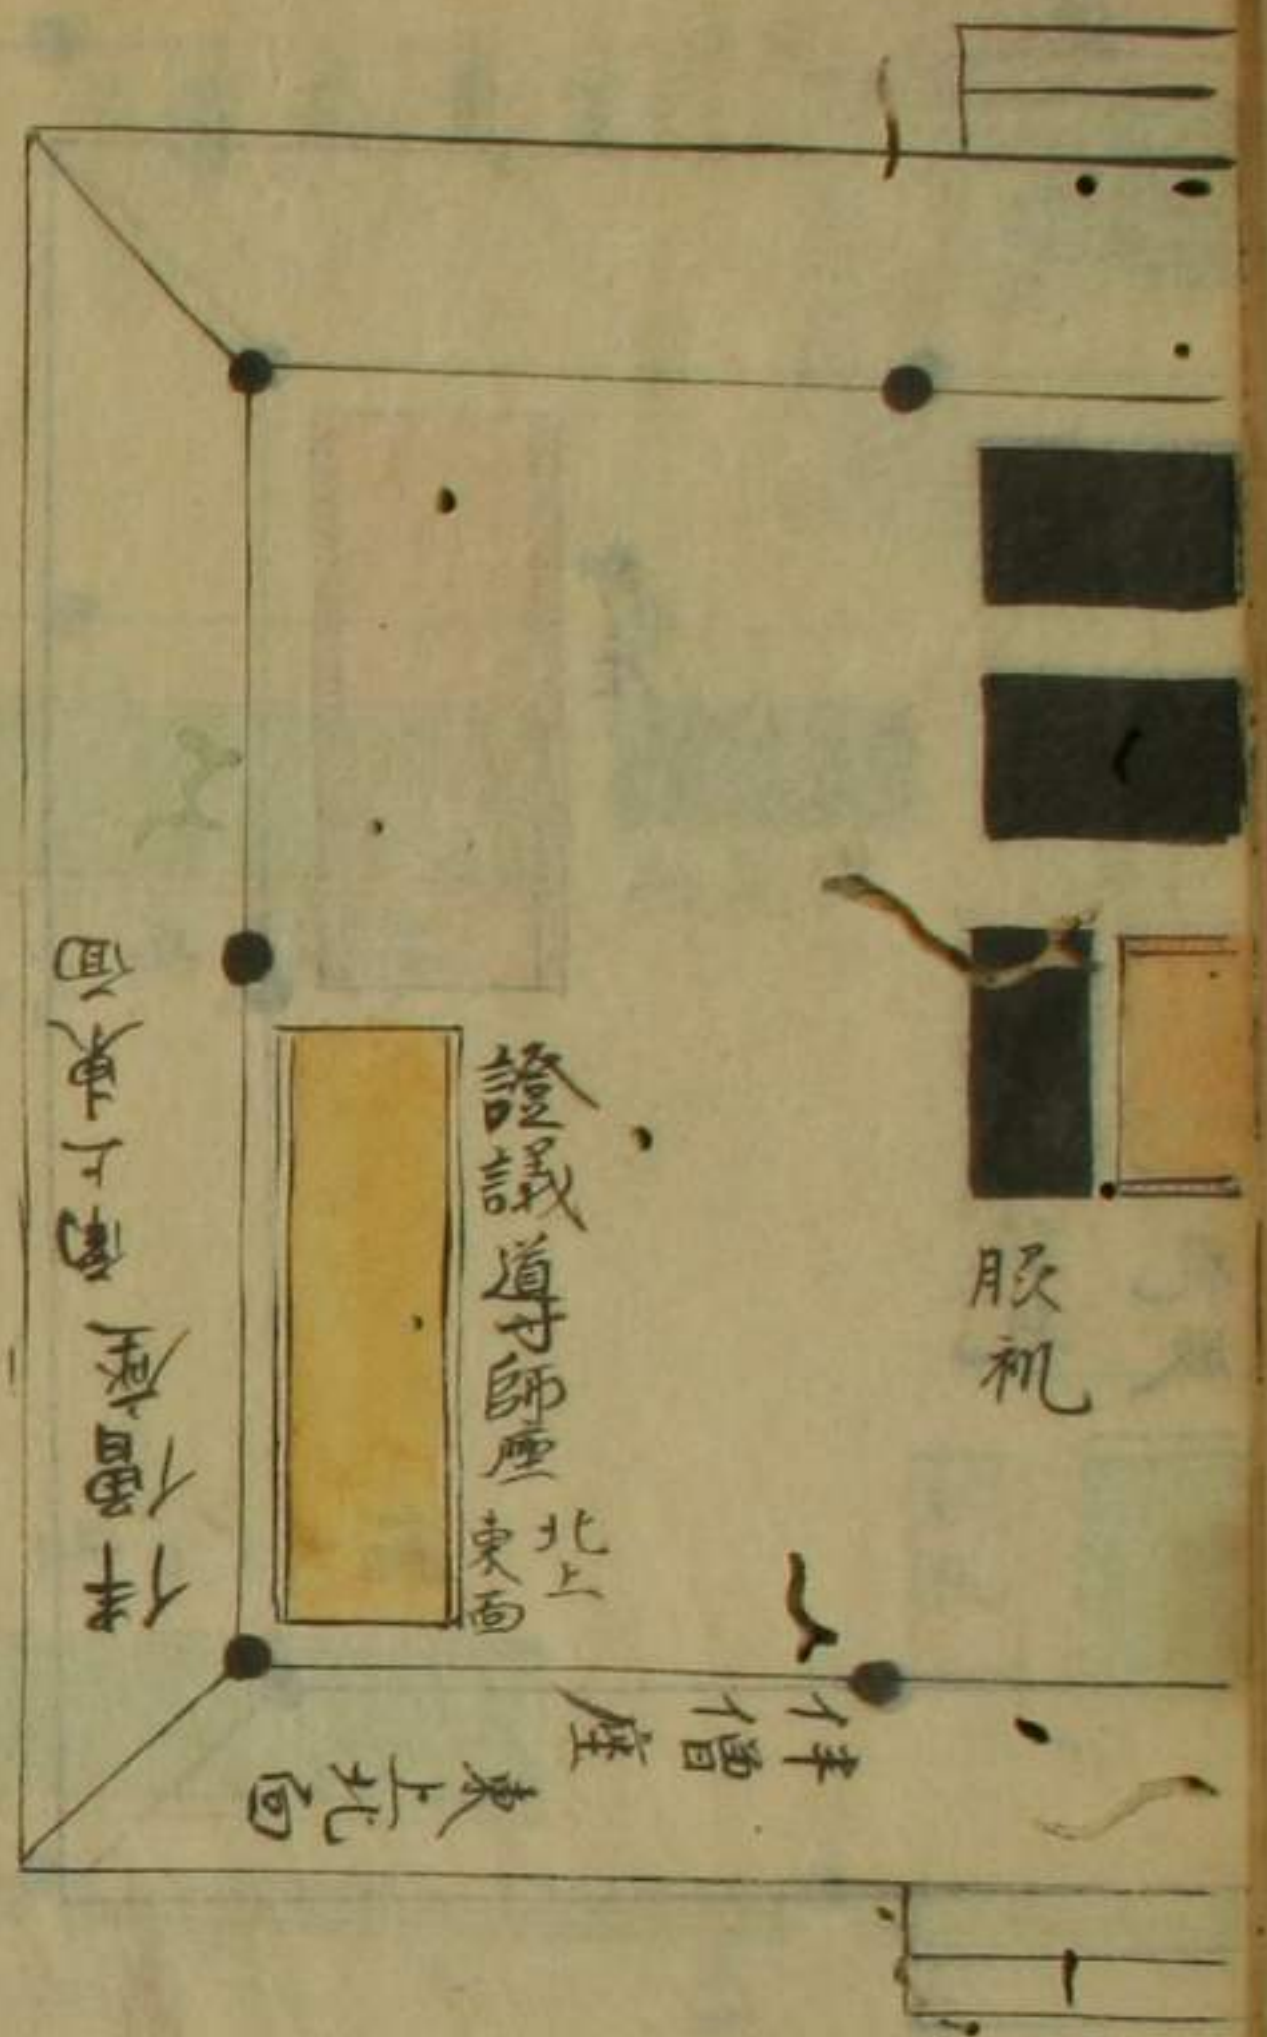 脇机
證議導師座
北上
東面
伴僧座
東上北面
伴僧座 南上東面